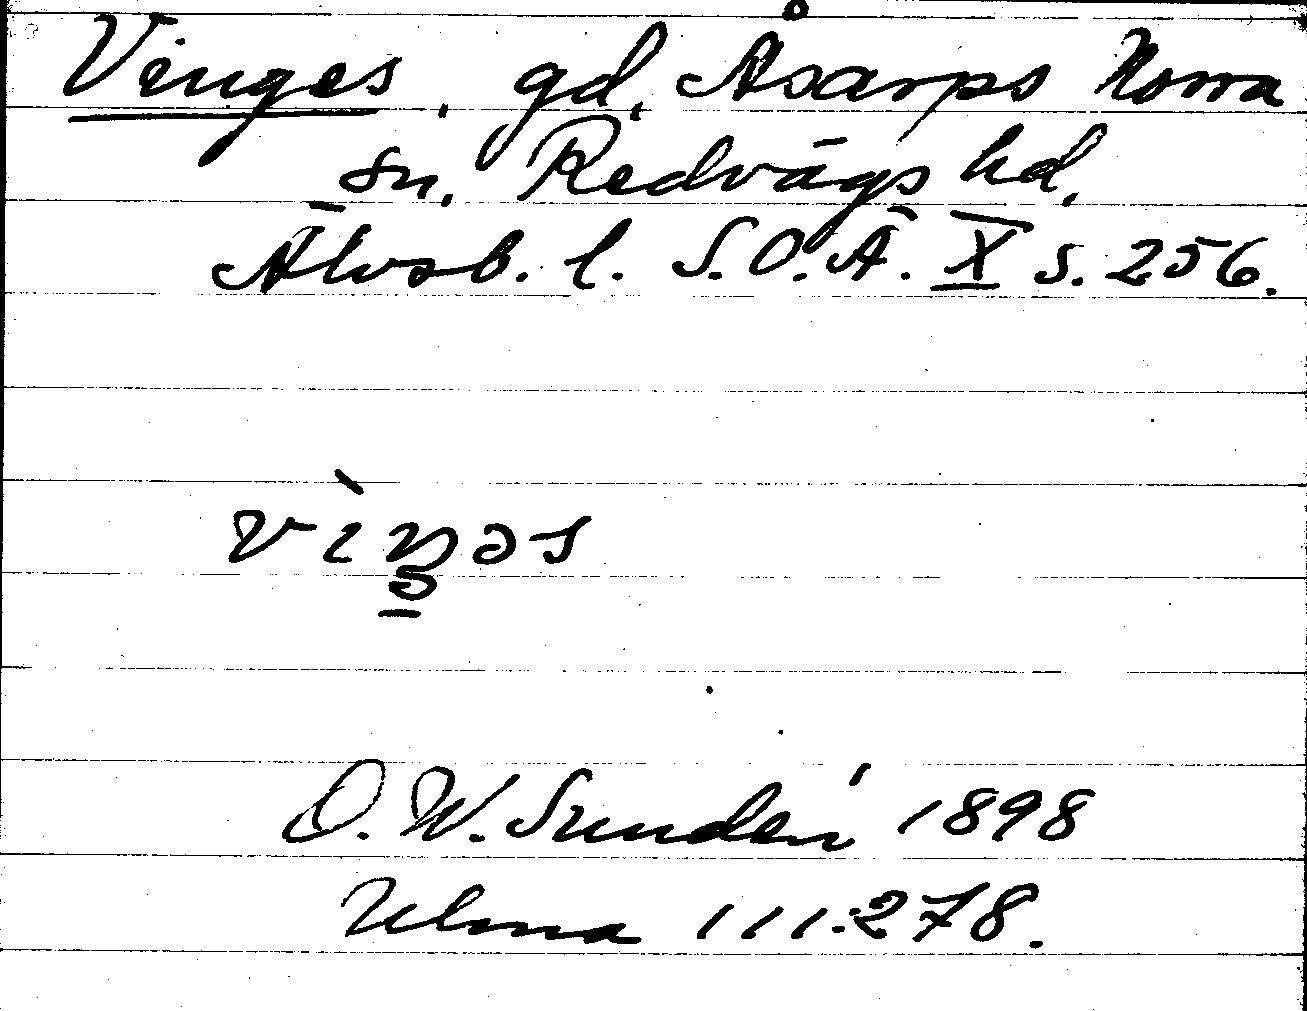 Vinges, gd, Åsarps Norra
sn, Redvägs hd,
Älvsb. l. S.O.Ä. X s. 256.
vìŋəs
D. W. Sundén 1898
Ulma 111:278.